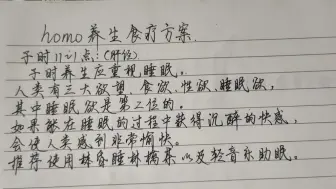 homo养生食疗方案.
子时11~1点:(肝位)
子时养生应重视睡眠。
人类有三大欲望,食欲,性欲,睡眠欲,
其中睡眠欲是第一位的。
如果能在睡眠的过程中获得沉醉的快感,
会使人类感到非常愉快。
推荐使用林睡林檎茶以及轻音乐助眠。